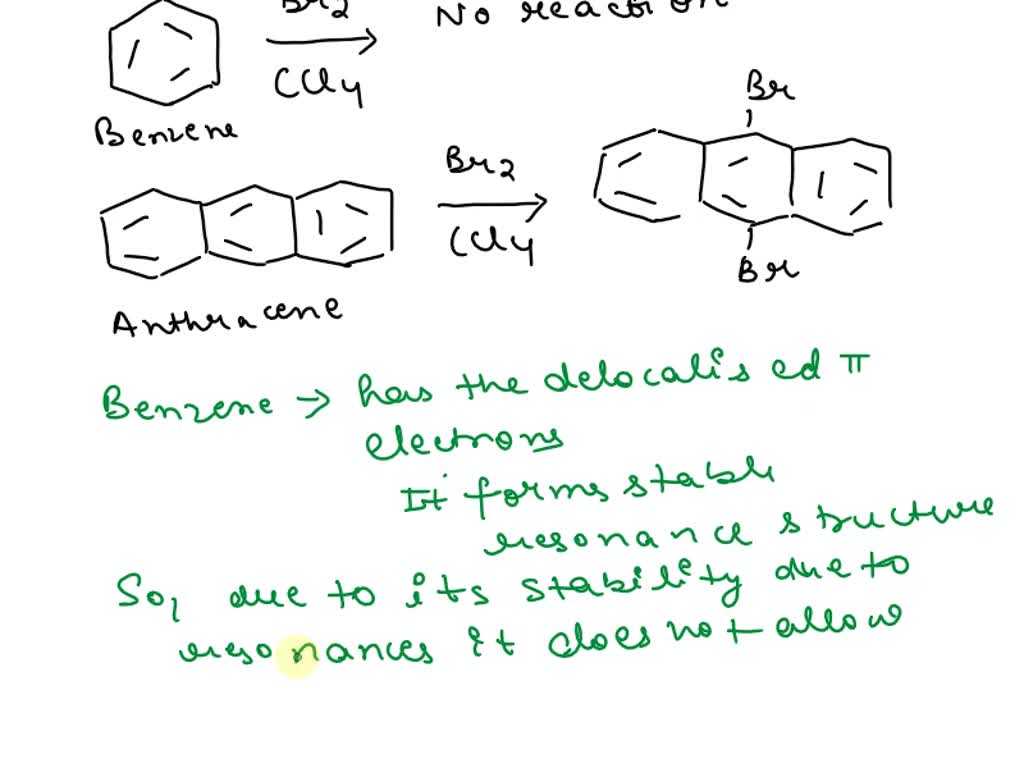 Br2
No reaction
CCl4
Benzene
Br
Br2
CCl4
Br
Anthracene
Benzene → has the delocalised π
electrons
It forms stable
resonance structure
So, due to its stability due to
resonances it does not allow